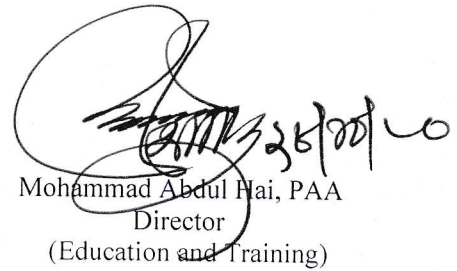 Mohammad Abdul Hai, PAA
Director
(Education and Training)